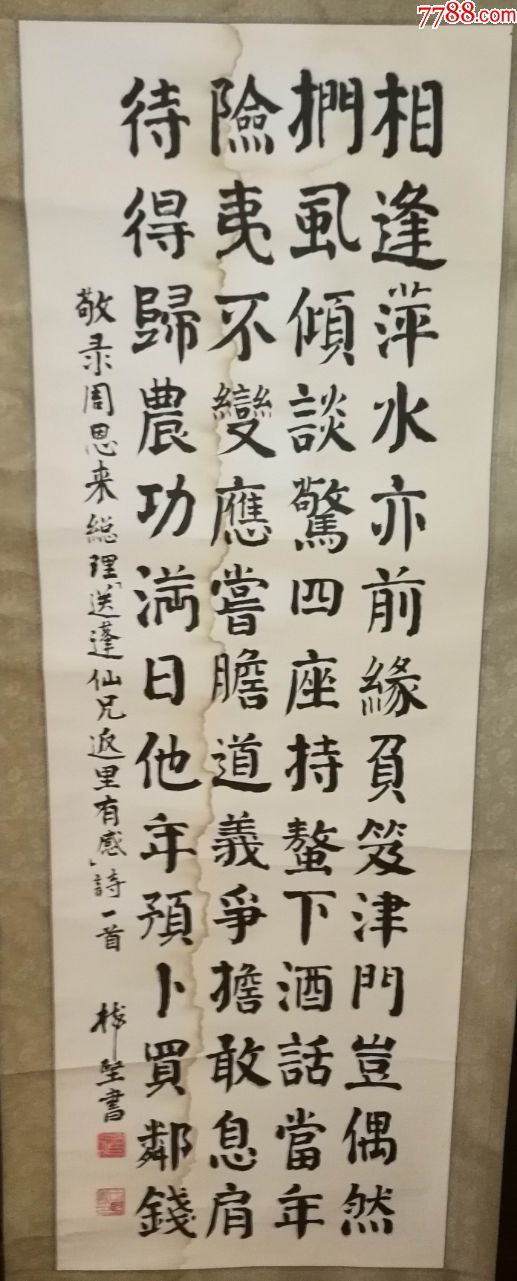 7788.com
相逢萍水亦前緣負笈津門豈偶然
捫虱傾談驚四座持螯下酒話當年
險夷不變應嘗膽道義爭擔敢息肩
待得歸農功滿日他年預卜買鄰錢
敬录周恩来総理「送蓬仙兄返里有感」詩一首
堅書